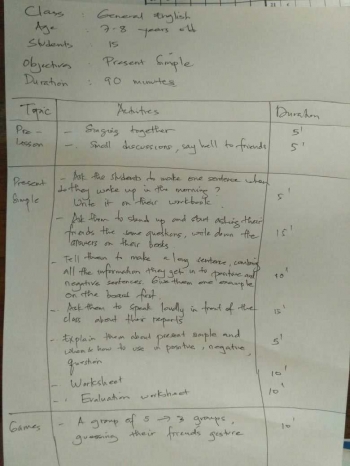 Class : General English
Age : 7-8 years old
Students : 15
Objectives : Present Simple
Duration : 90 minutes
Topic Activities Duration
Pre - - Singing together 5'
Lesson - Small discussions, say hello to friends 5'
Present - Ask the students to make one sentence when
Simple do they wake up in the morning? 5'
Write it on their workbook.
- Ask them to stand up and start asking their
friends the same questions, write down the 15'
answers on their books
- Tell them to make a long sentence,
all the information they get in to positive and 10'
negative sentences. Give them one example
on the board first
- Ask them to speak loudly in front of the 15'
class about their reports
- Explain them about present simple and 5'
how to use a positive, negative,
question
- Worksheet 10'
- Evaluation worksheet 10'
Games - A group of 5 → 3 groups, 10'
guessing their friends gesture